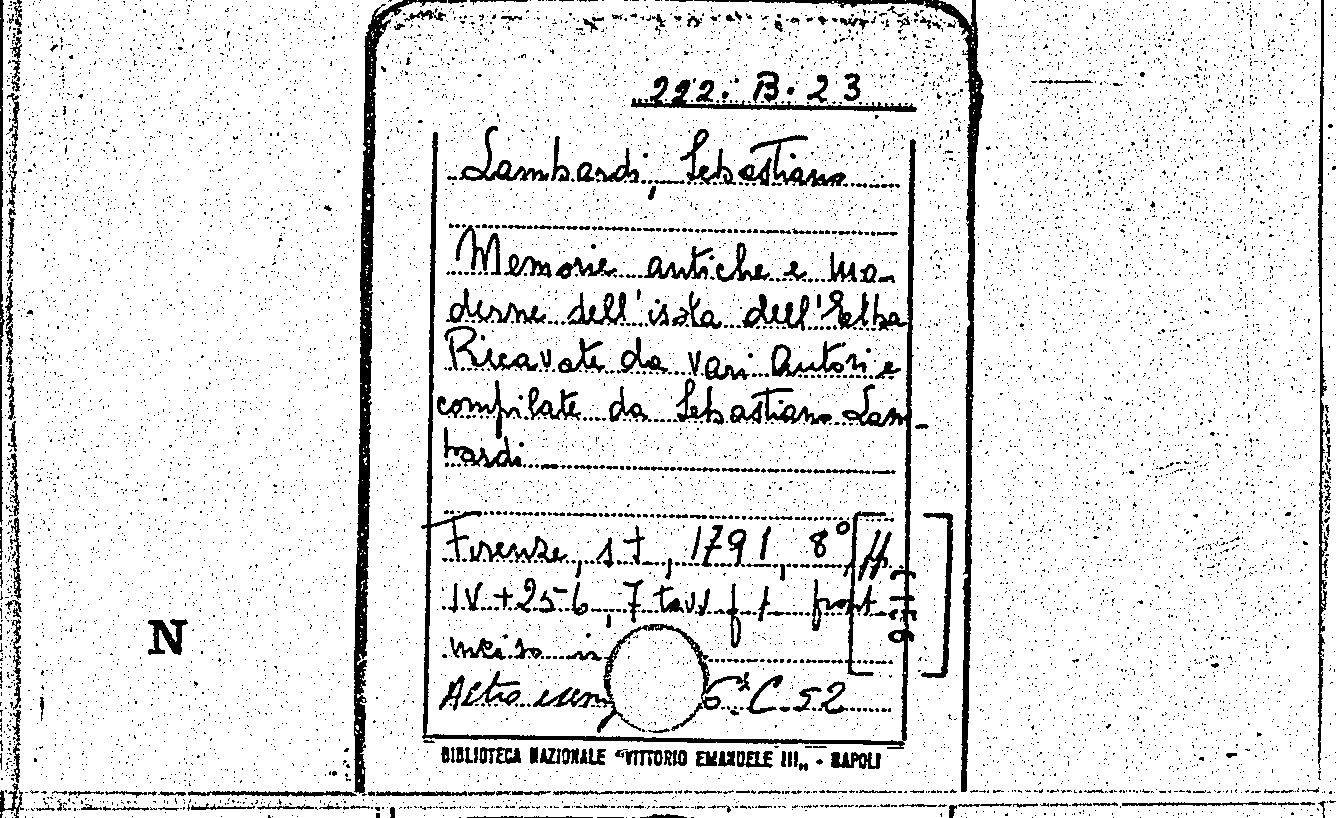 222. B. 23
Lambardi, Sebastiano
Memorie antiche e mo-
derne dell'isola dell'Elba
Ricavate da vari Autori e
compilate da Sebastiano Lam-
bardi
Firenze, s t, 1791, 8°,
IV + 256, 7 tavv f t front
inciso in
Altro esem 6ª C. 52
BIBLIOTECA NAZIONALE "VITTORIO EMANUELE III" - NAPOLI
N